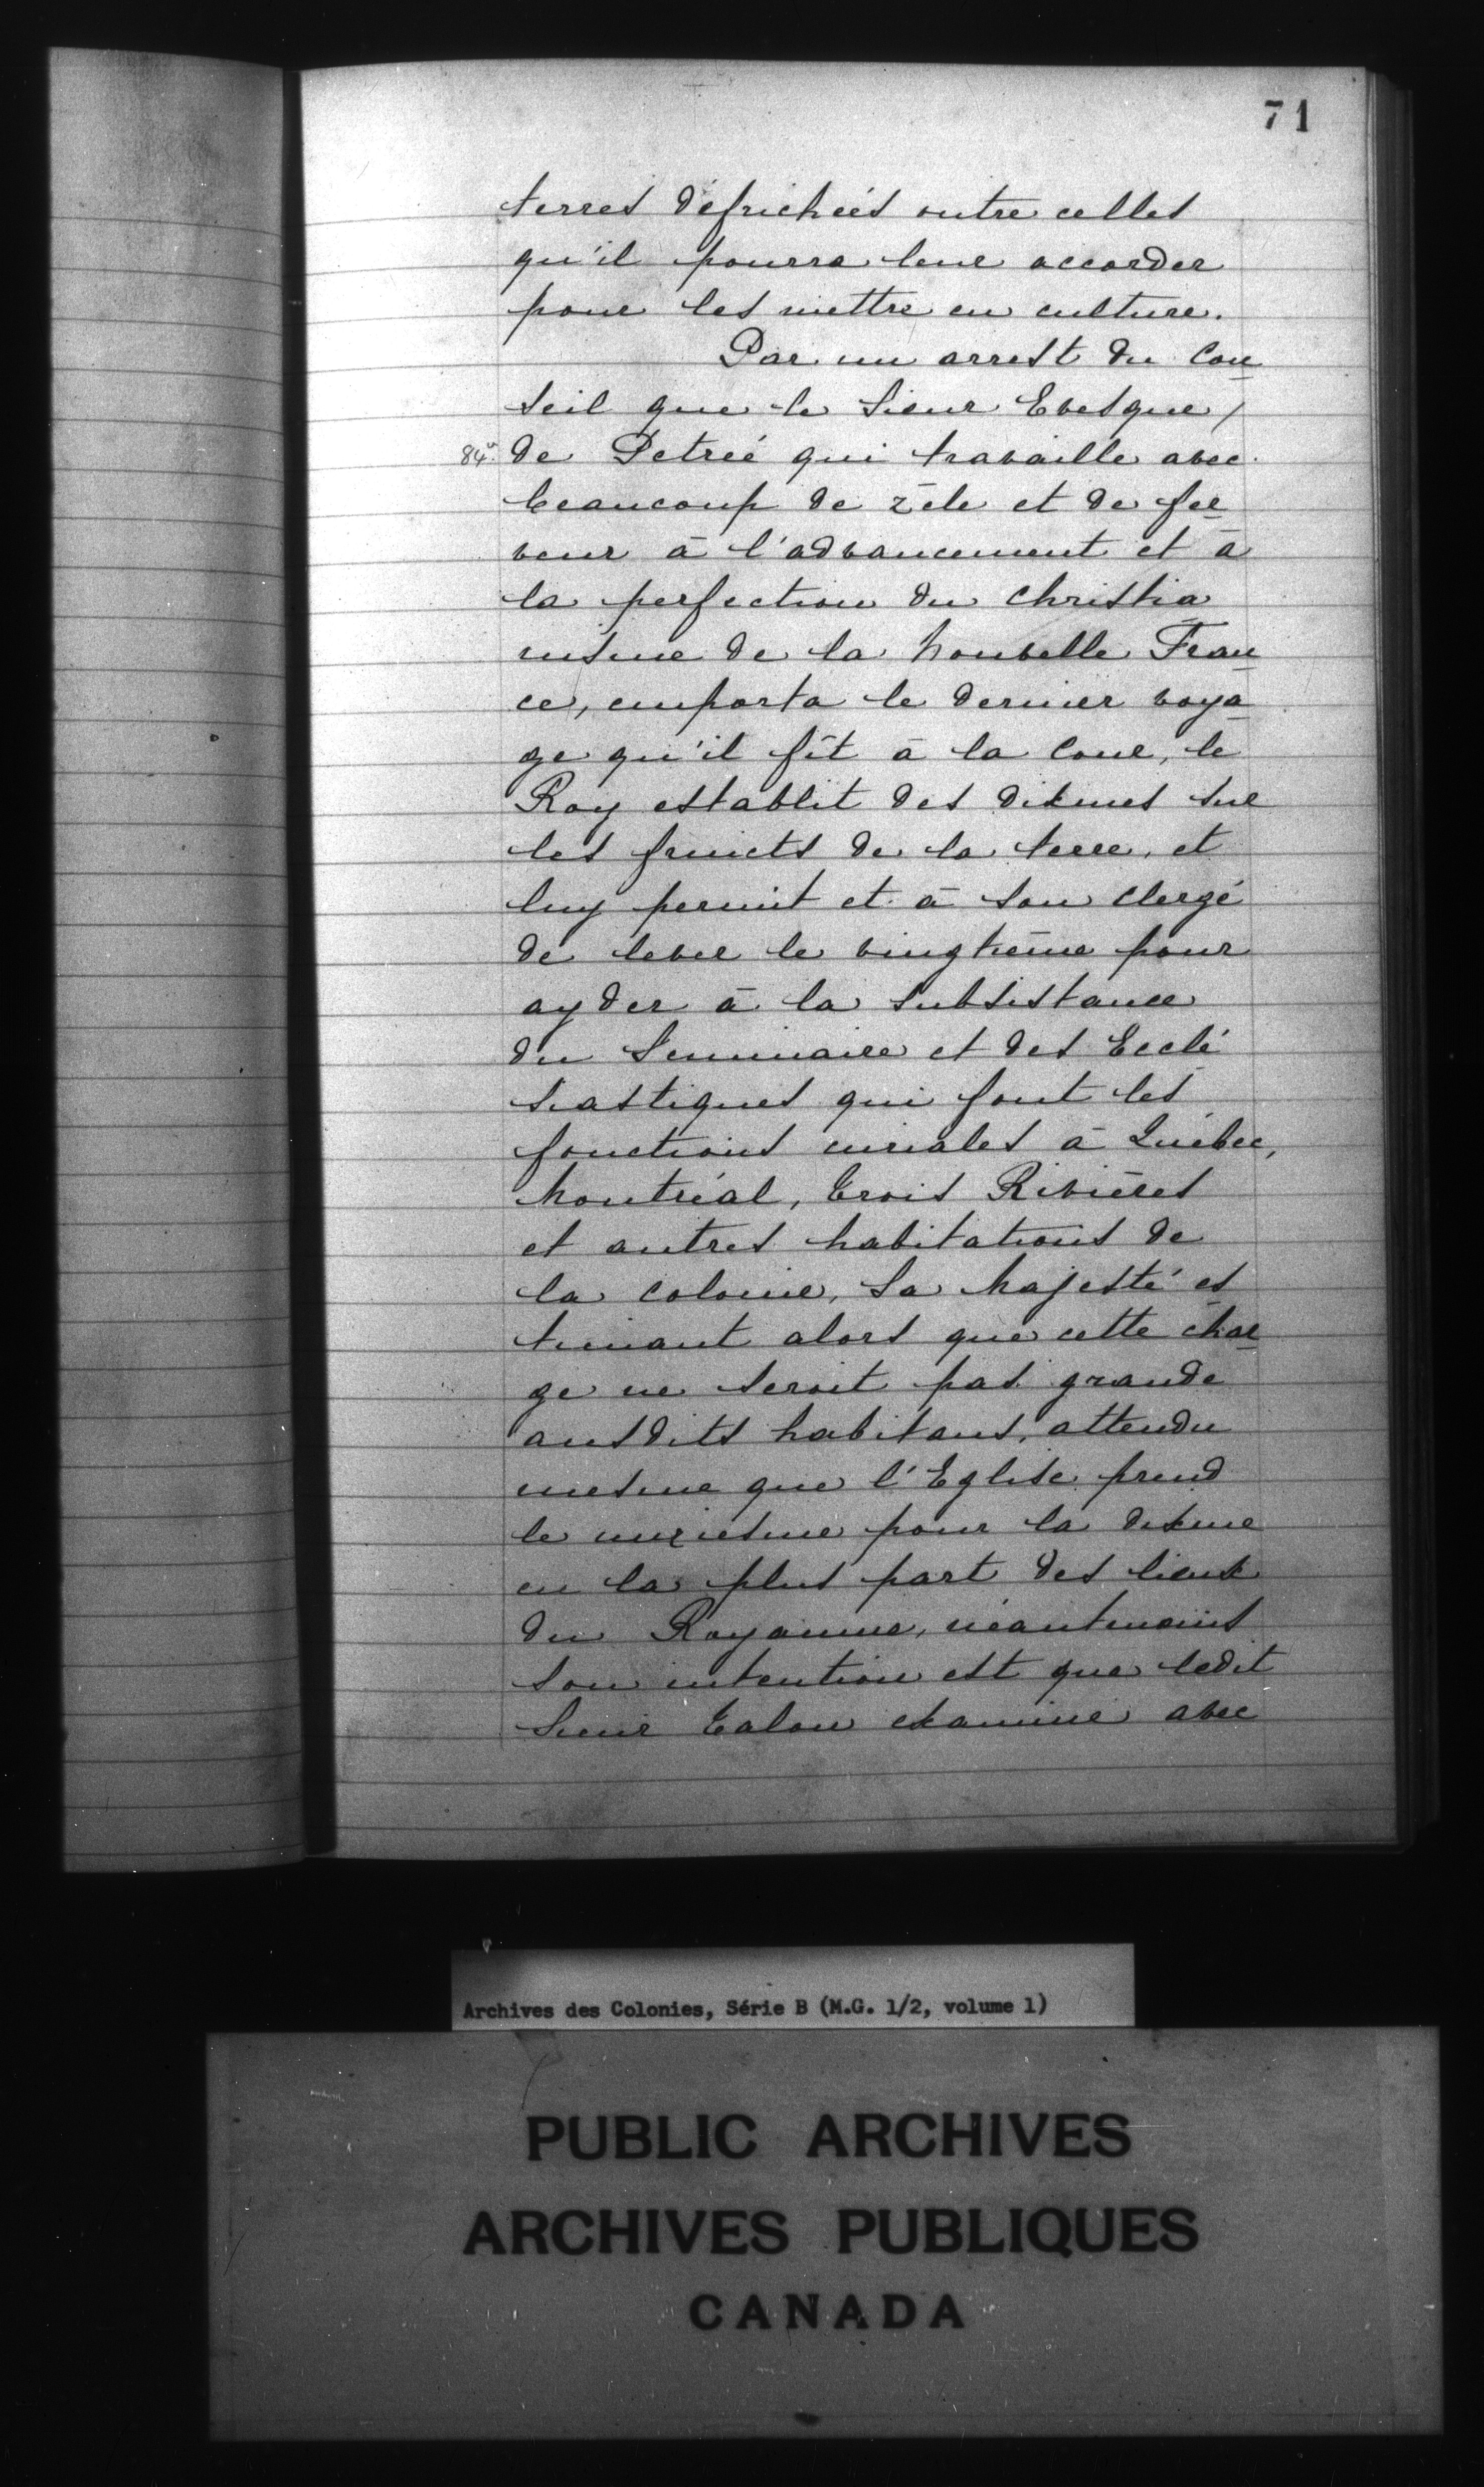 71
terres défrichées outre celles
qu'il pourra leur accorder
pour les mettre en culture.
Par un arrest du Con
seil que le Sieur Evesque /
84v. de Petrée qui travaille avec
beaucoup de zèle et de fer
veur à l'advancement et à
la perfection du Christia
nisme de la Nouvelle Fran
ce, emporta le dernier voya
ge qu'il fît à la Cour, le
Roy establit des dixmes sur
les fruicts de la terre, et
luy permit et à son Clergé
de lever le vingtième pour
ayder à la subsistance
du Seminaire et des Ecclé
siastiques qui font les
fonctions curiales à Québec,
Montréal, Trois Rivières
et autres habitations de
la colonie, Sa Majesté es
timant alors que cette char
ge ne seroit pas grande
ausdits habitans, attendu
mesme que l'Eglise prend
le unziesme pour la dixme
en la plus part des lieux
du Royaume, néantmoins
son intention est que ledit
Sieur Talon examine avec
Archives des Colonies, Série B (M.G. 1/2, volume 1)
PUBLIC ARCHIVES
ARCHIVES PUBLIQUES
CANADA